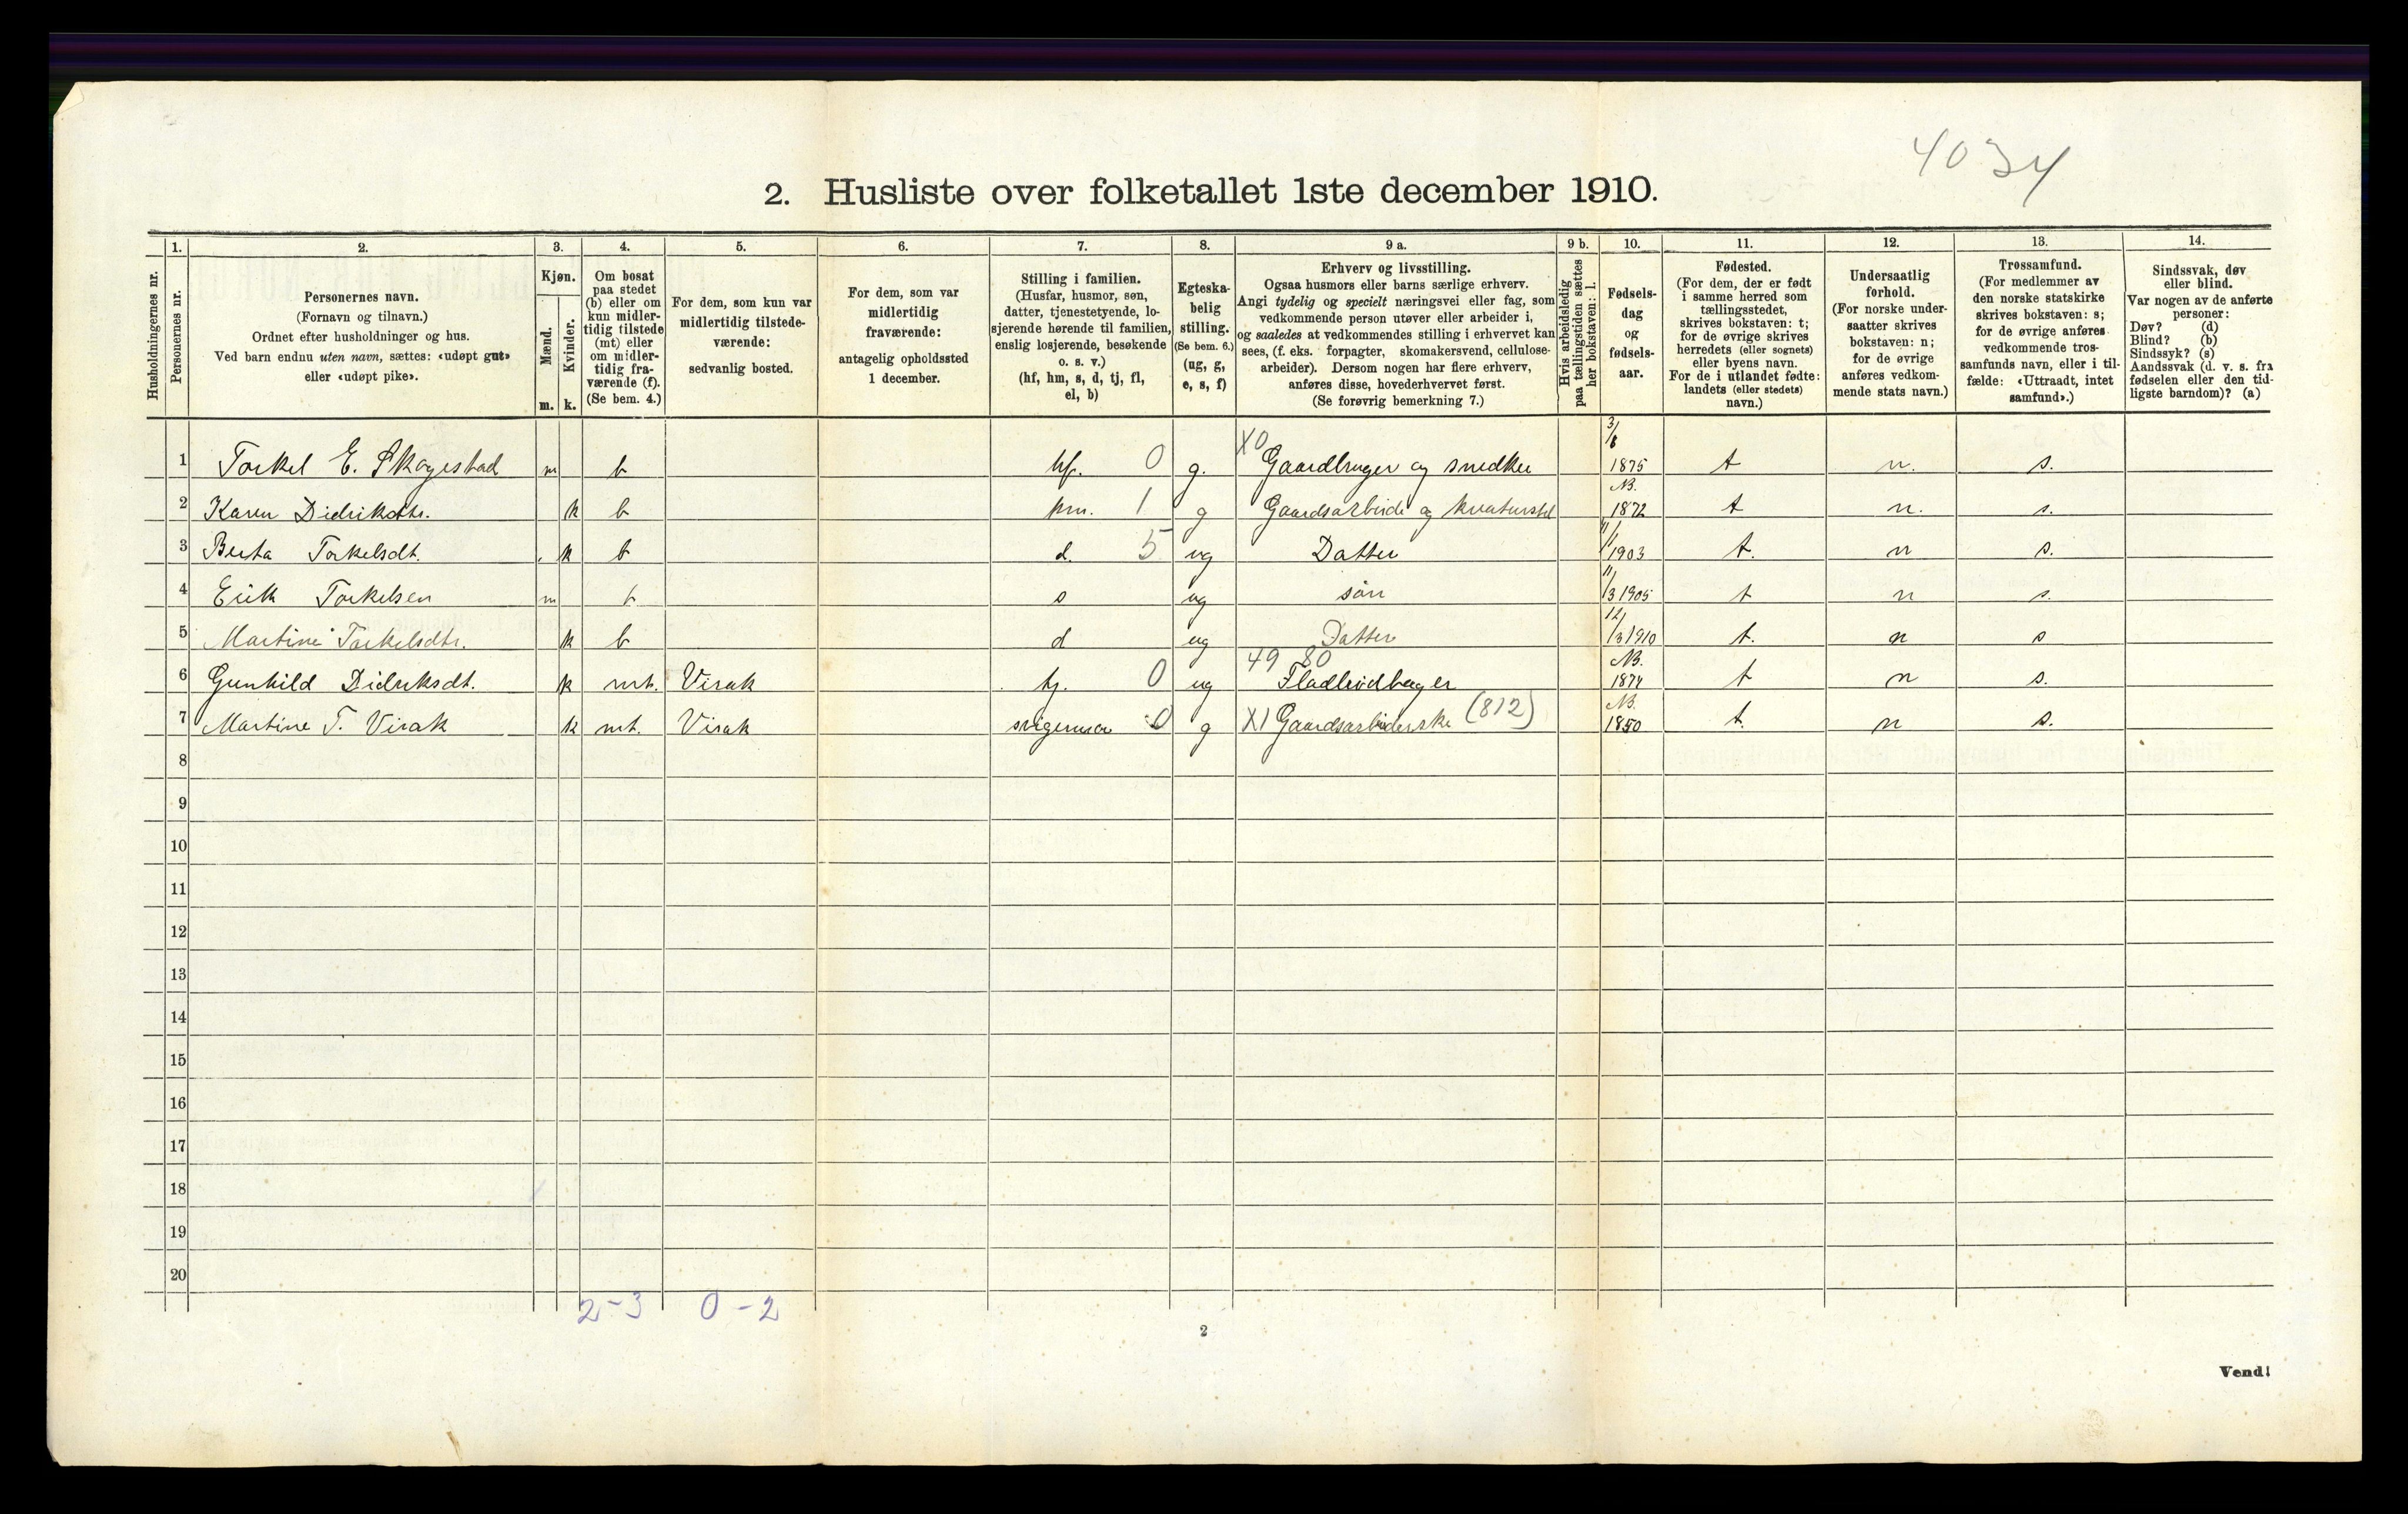 4034
2. Husliste over folketallet 1ste december 1910.
1. 2. 3. 4. 5. 6. 7. 8. 9 a. 9 b. 10. 11. 12. 13. 14.
Husholdningernes nr.
Personernes nr.
Personernes navn.
(Fornavn og tilnavn.)
Ordnet efter husholdninger og hus.
Ved barn endnu uten navn, sættes: «udøpt gut»
eller «udøpt pike».
Kjøn.
Mænd.
Kvinder.
m. k.
Om bosat
paa stedet
(b) eller om
kun midler-
tidig tilstede
(mt) eller
om midler-
tidig fra-
værende (f).
(Se bem. 4.)
For dem, som kun var
midlertidig tilstede-
værende:
sedvanlig bosted.
For dem, som var
midlertidig
fraværende:
antagelig opholdssted
1 december.
Stilling i familien.
(Husfar, husmor, søn,
datter, tjenestetyende, lo-
sjerende hørende til familien,
enslig losjerende, besøkende
o. s. v.)
(hf, hm, s, d, tj, fl,
el, b)
Egteska-
belig
stilling.
(Se bem. 6.)
(ug, g,
e, s, f)
Erhverv og livsstilling.
Ogsaa husmors eller barns særlige erhverv.
Angi tydelig og specielt næringsvei eller fag, som
vedkommende person utøver eller arbeider i,
og saaledes at vedkommendes stilling i erhvervet kan
sees, (f. eks. forpagter, skomakersvend, cellulose-
arbeider). Dersom nogen har flere erhverv,
anføres disse, hovederhvervet først.
(Se forøvrig bemerkning 7.)
Hvis arbeidsledig
paa tællingstiden sættes
her bokstaven: l.
Fødsels-
dag
og
fødsels-
aar.
Fødested.
(For dem, der er født
i samme herred som
tællingsstedet,
skrives bokstaven: t;
for de øvrige skrives
herredets (eller sognets)
eller byens navn.
For de i utlandet fødte:
landets (eller stedets)
navn.)
Undersaatlig
forhold.
(For norske under-
saatter skrives
bokstaven: n;
for de øvrige
anføres vedkom-
mende stats navn.)
Trossamfund.
(For medlemmer av
den norske statskirke
skrives bokstaven: s;
for de øvrige anføres
vedkommende tros-
samfunds navn, eller i til-
fælde: «Uttraadt, intet
samfund».)
Sindssvak, døv
eller blind.
Var nogen av de anførte
personer:
Døv? (d)
Blind? (b)
Sindssyk? (s)
Aandssvak (d. v. s. fra
fødselen eller den tid-
ligste barndom)? (a)
1 Torkel E. Skogestad m b hf. 0 g. X0 Gaardbruger og snedker 1875 t n. s.
2 Karen Didriksdtr. k b hm. 1 g Gaardsarbeide og kreaturstel NB. 1872 t n. s.
3 Berta Torkelsdt. k b d. 5 ug Datter 11/1 1903 t. n s.
4 Erik Torkelsen m b s ug søn 11/3 1905 t n s.
5 Martine Torkelsdtr. k b d ug Datter 12/3 1910 t. n s
6 Gunhild Didriksdt. k mt. Virak tj. 0 ug 49 80 Fladbrødbager NB. 1874 t n s.
7 Martine T. Virak k mt. Virak svigermor 0 g X1 Gaardsarbeiderske (812) NB. 1850 t. n s.
8
9
10
11
12
13
14
15
16
17
18
19
20
2-3 0-2
2
Vend!